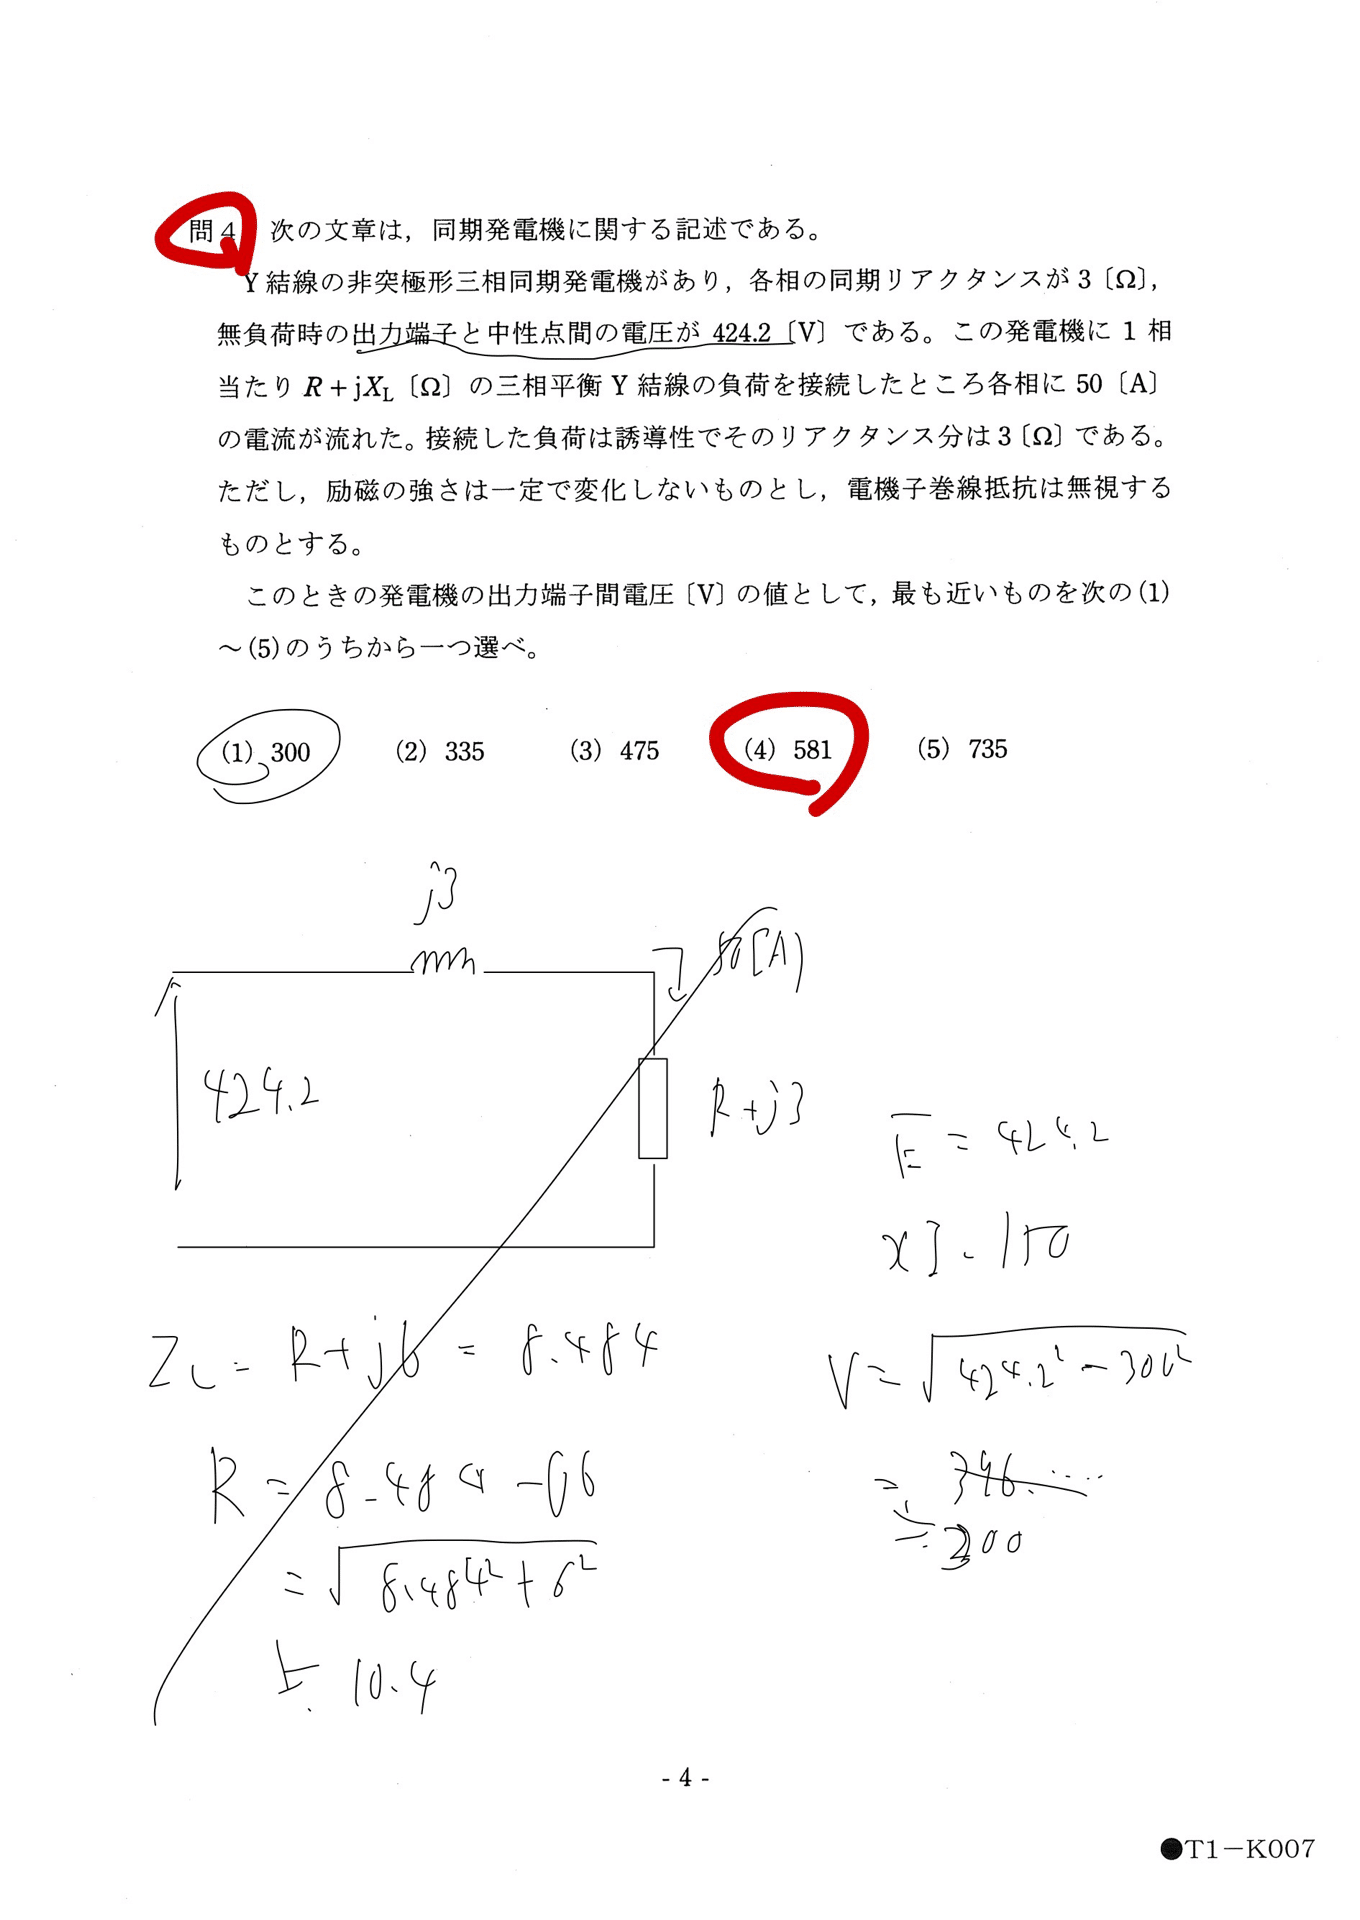 問4 次の文章は，同期発電機に関する記述である。
Y結線の非突極形三相同期発電機があり，各相の同期リアクタンスが3〔Ω〕，
無負荷時の出力端子と中性点間の電圧が 424.2〔V〕である。この発電機に1相
当たり R+jXL〔Ω〕の三相平衡Y結線の負荷を接続したところ各相に50〔A〕
の電流が流れた。接続した負荷は誘導性でそのリアクタンス分は3〔Ω〕である。
ただし，励磁の強さは一定で変化しないものとし，電機子巻線抵抗は無視する
ものとする。
このときの発電機の出力端子間電圧〔V〕の値として，最も近いものを次の(1)
～(5)のうちから一つ選べ。
(1) 300 (2) 335 (3) 475 (4) 581 (5) 735
j3
50[A]
424.2
R+j3
E = 424.2
xI = 150
ZL = R+j6 = 8.484
V = √424.2²-300²
R = 8.484 -
=
= √8.484²+6²
≒ 300
≒ 10.4
- 4 -
●T1－K007